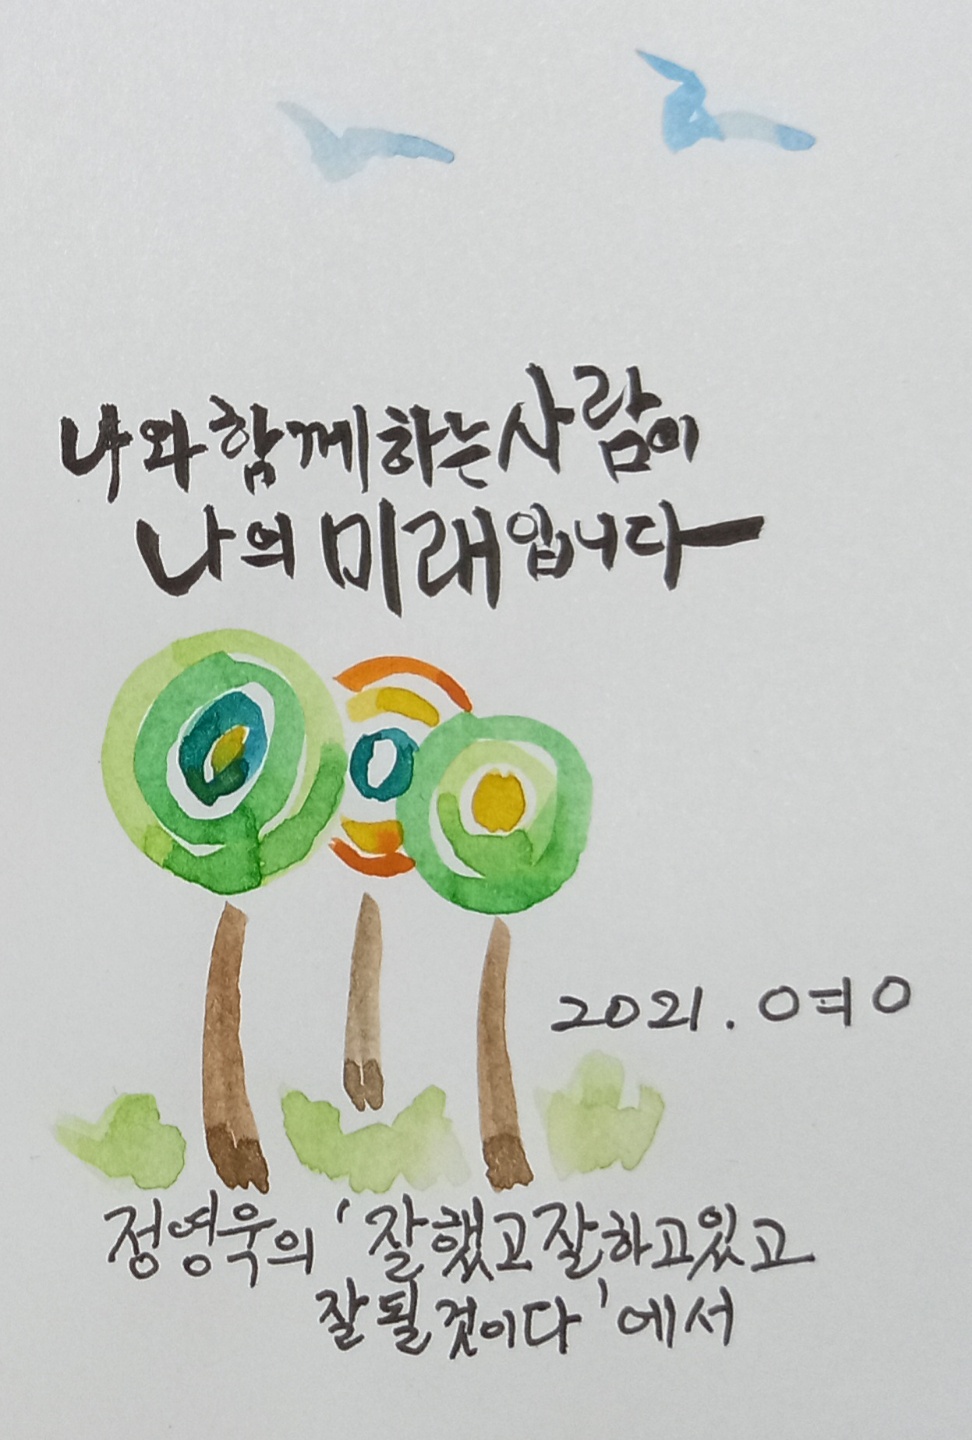 나와 함께하는 사람이
나의 미래입니다
2021. 여영
정영욱의 '잘했고 잘하고 있고
잘 될 것이다'에서